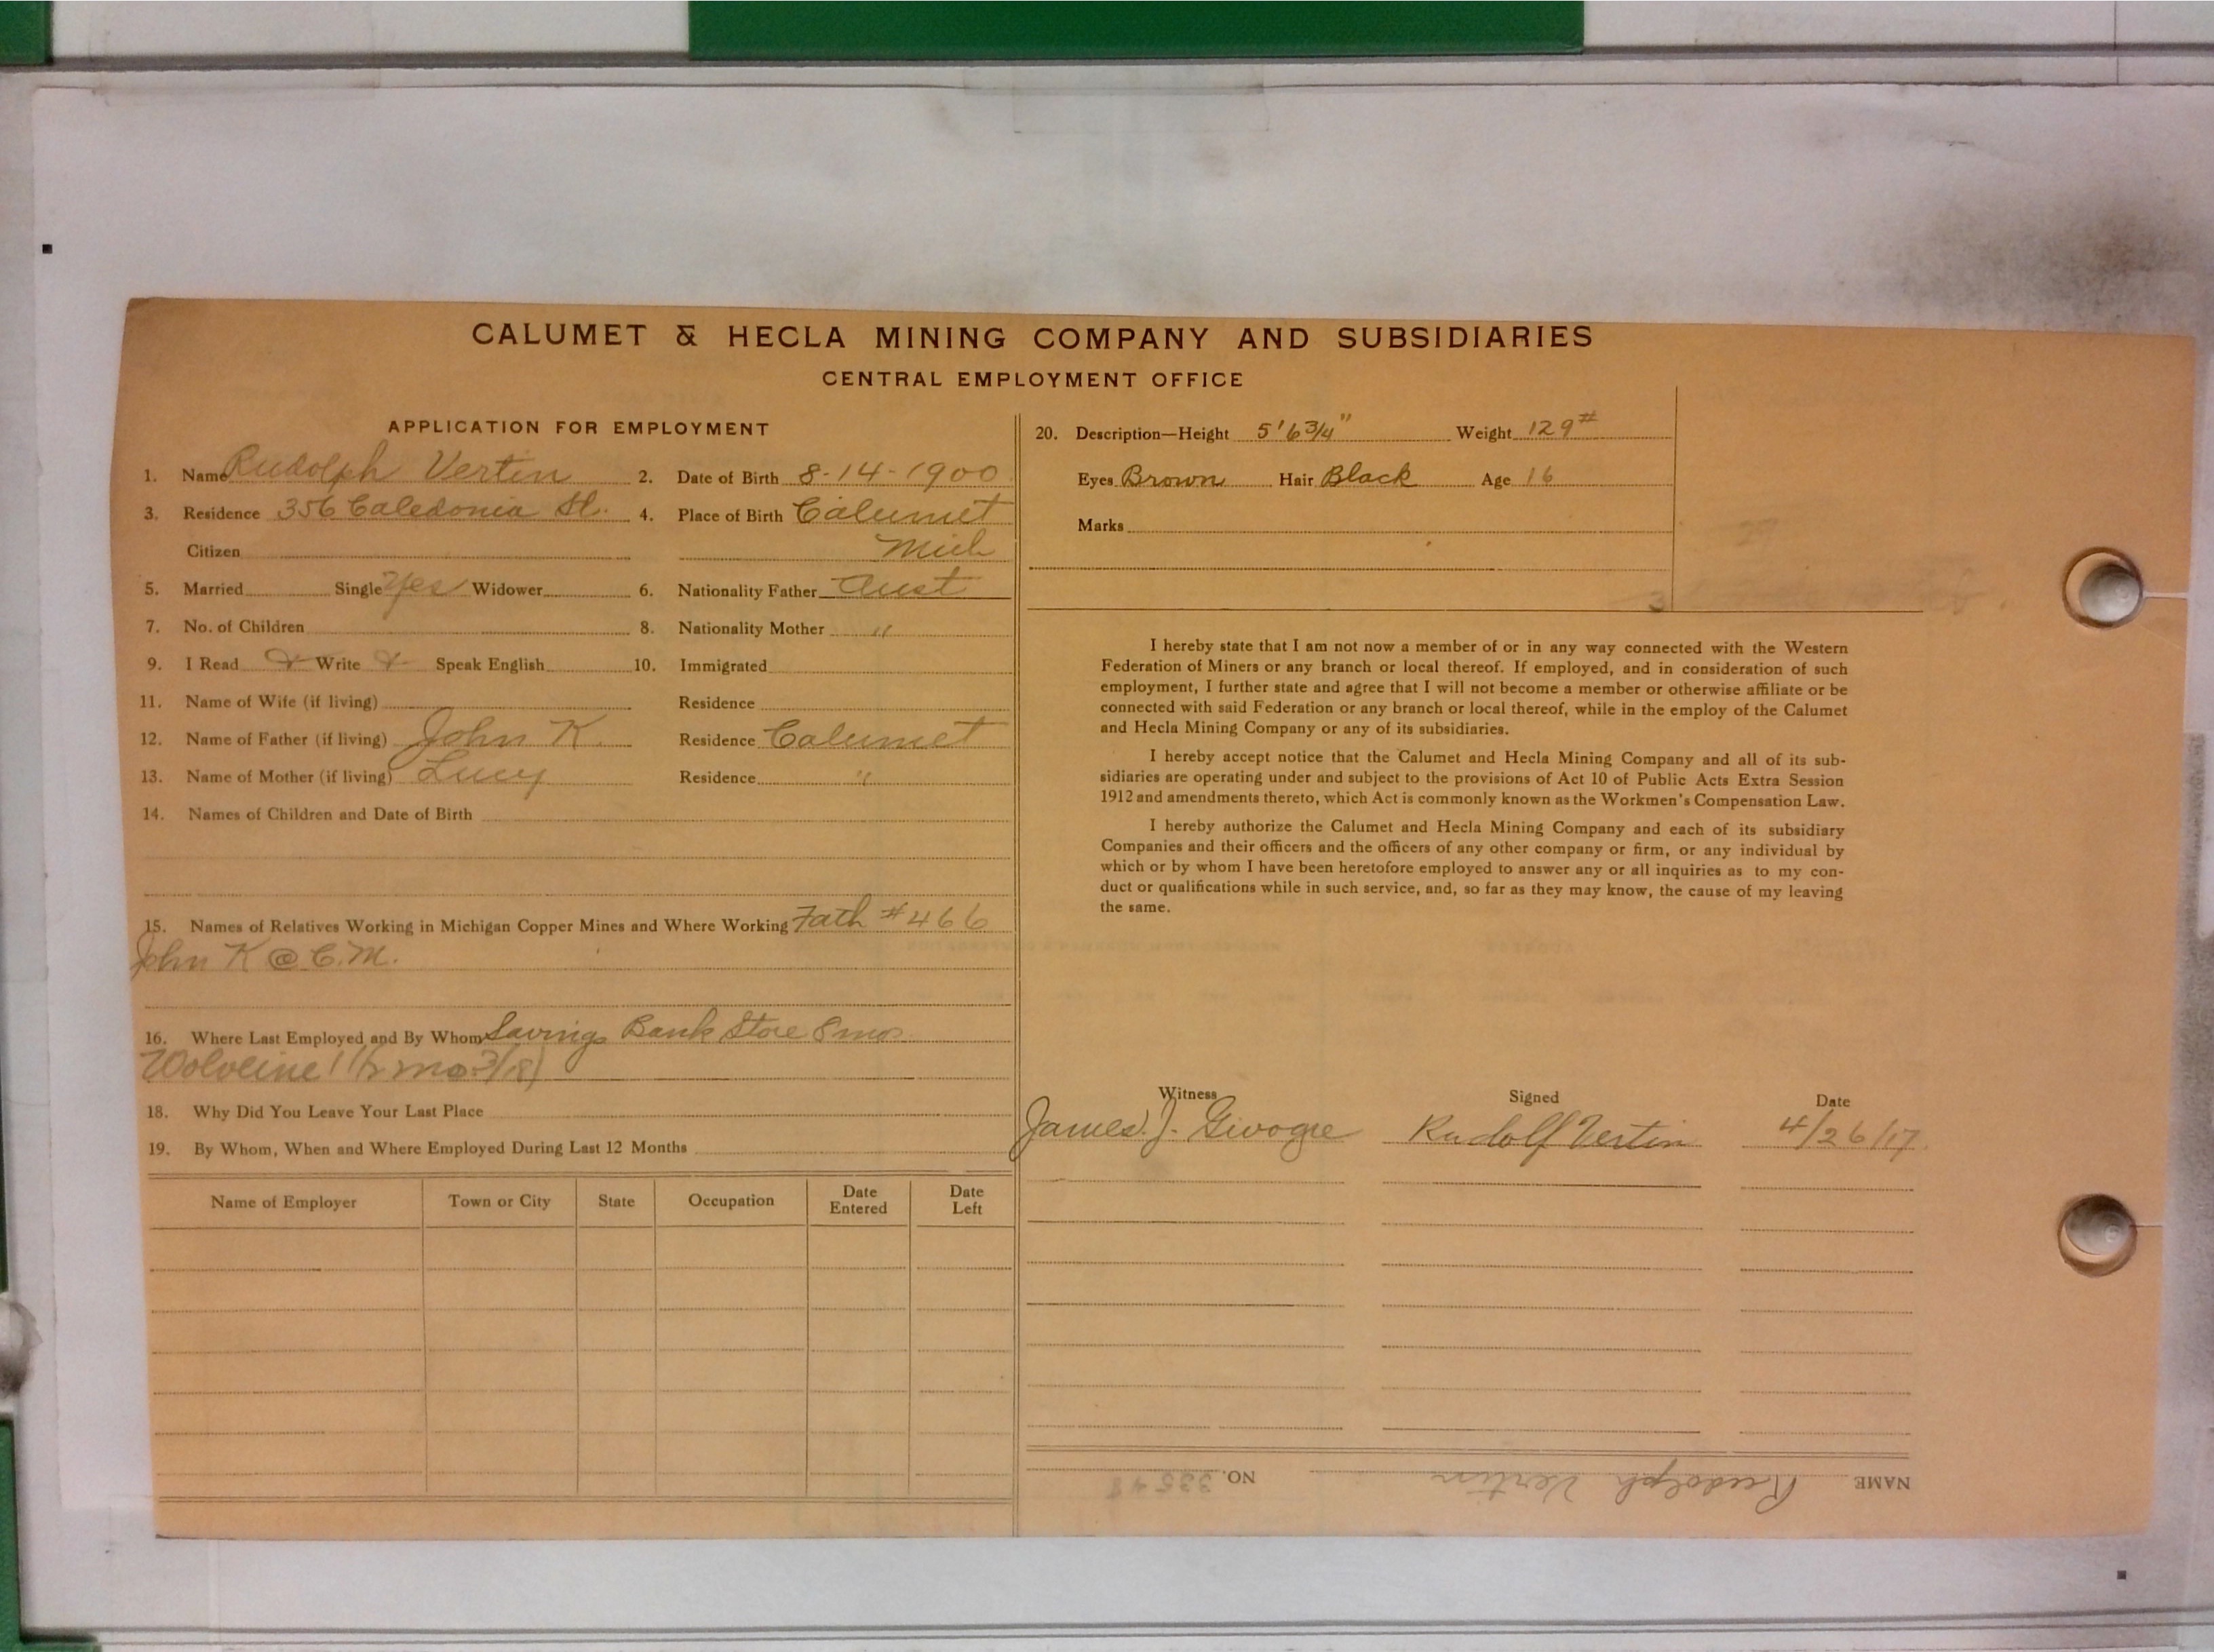 CALUMET & HECLA MINING COMPANY AND SUBSIDIARIES
CENTRAL EMPLOYMENT OFFICE
APPLICATION FOR EMPLOYMENT
1. Name Rudolph Vertin 2. Date of Birth 8-14-1900
3. Residence 356 Caledonia St. 4. Place of Birth Calumet
Citizen Mich
5. Married Single Yes Widower 6. Nationality Father Aust
7. No. of Children 8. Nationality Mother "
9. I Read Write Speak English 10. Immigrated
11. Name of Wife (if living) Residence
12. Name of Father (if living) John K. Residence Calumet
13. Name of Mother (if living) Lucy Residence "
14. Names of Children and Date of Birth
15. Names of Relatives Working in Michigan Copper Mines and Where Working Fath #466
John K @ C.M.
16. Where Last Employed and By Whom Savings Bank Store 8 mos.
18. Why Did You Leave Your Last Place
19. By Whom, When and Where Employed During Last 12 Months
Name of Employer Town or City State Occupation Date Entered Date Left
20. Description—Height 5' 6 3/4" Weight 129#
Eyes Brown Hair Black Age 16
Marks
3
I hereby state that I am not now a member of or in any way connected with the Western
Federation of Miners or any branch or local thereof. If employed, and in consideration of such
employment, I further state and agree that I will not become a member or otherwise affiliate or be
connected with said Federation or any branch or local thereof, while in the employ of the Calumet
and Hecla Mining Company or any of its subsidiaries.
I hereby accept notice that the Calumet and Hecla Mining Company and all of its sub-
sidiaries are operating under and subject to the provisions of Act 10 of Public Acts Extra Session
1912 and amendments thereto, which Act is commonly known as the Workmen's Compensation Law.
I hereby authorize the Calumet and Hecla Mining Company and each of its subsidiary
Companies and their officers and the officers of any other company or firm, or any individual by
which or by whom I have been heretofore employed to answer any or all inquiries as to my con-
duct or qualifications while in such service, and, so far as they may know, the cause of my leaving
the same.
Witness Signed Date
James J. Rudolf Vertin 4/26/17
NAME Rudolph Vertin NO. 33548